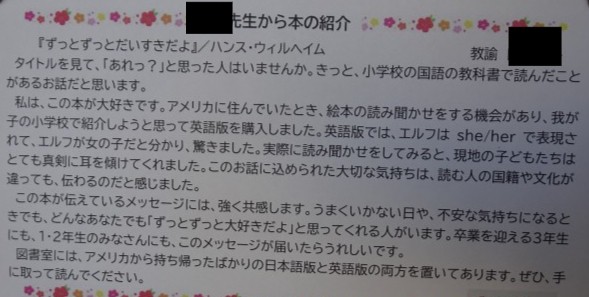 先生から本の紹介
『ずっとずっとだいすきだよ』／ハンス・ウィルヘイム 教諭
タイトルを見て、「あれっ？」と思った人はいませんか。きっと、小学校の国語の教科書で読んだこと
があるお話だと思います。
私は、この本が大好きです。アメリカに住んでいたとき、絵本の読み聞かせをする機会があり、我が
子の小学校で紹介しようと思って英語版を購入しました。英語版では、エルフは she/her で表現さ
れて、エルフが女の子だと分かり、驚きました。実際に読み聞かせをしてみると、現地の子どもたちは
とても真剣に耳を傾けてくれました。このお話に込められた大切な気持ちは、読む人の国籍や文化が
違っても、伝わるのだと感じました。
この本が伝えているメッセージには、強く共感します。うまくいかない日や、不安な気持ちになると
きでも、どんなあなたでも「ずっとずっと大好きだよ」と思ってくれる人がいます。卒業を迎える３年生
にも、１・２年生のみなさんにも、このメッセージが届いたらうれしいです。
図書室には、アメリカから持ち帰ったばかりの日本語版と英語版の両方を置いてあります。ぜひ、手
に取って読んでください。